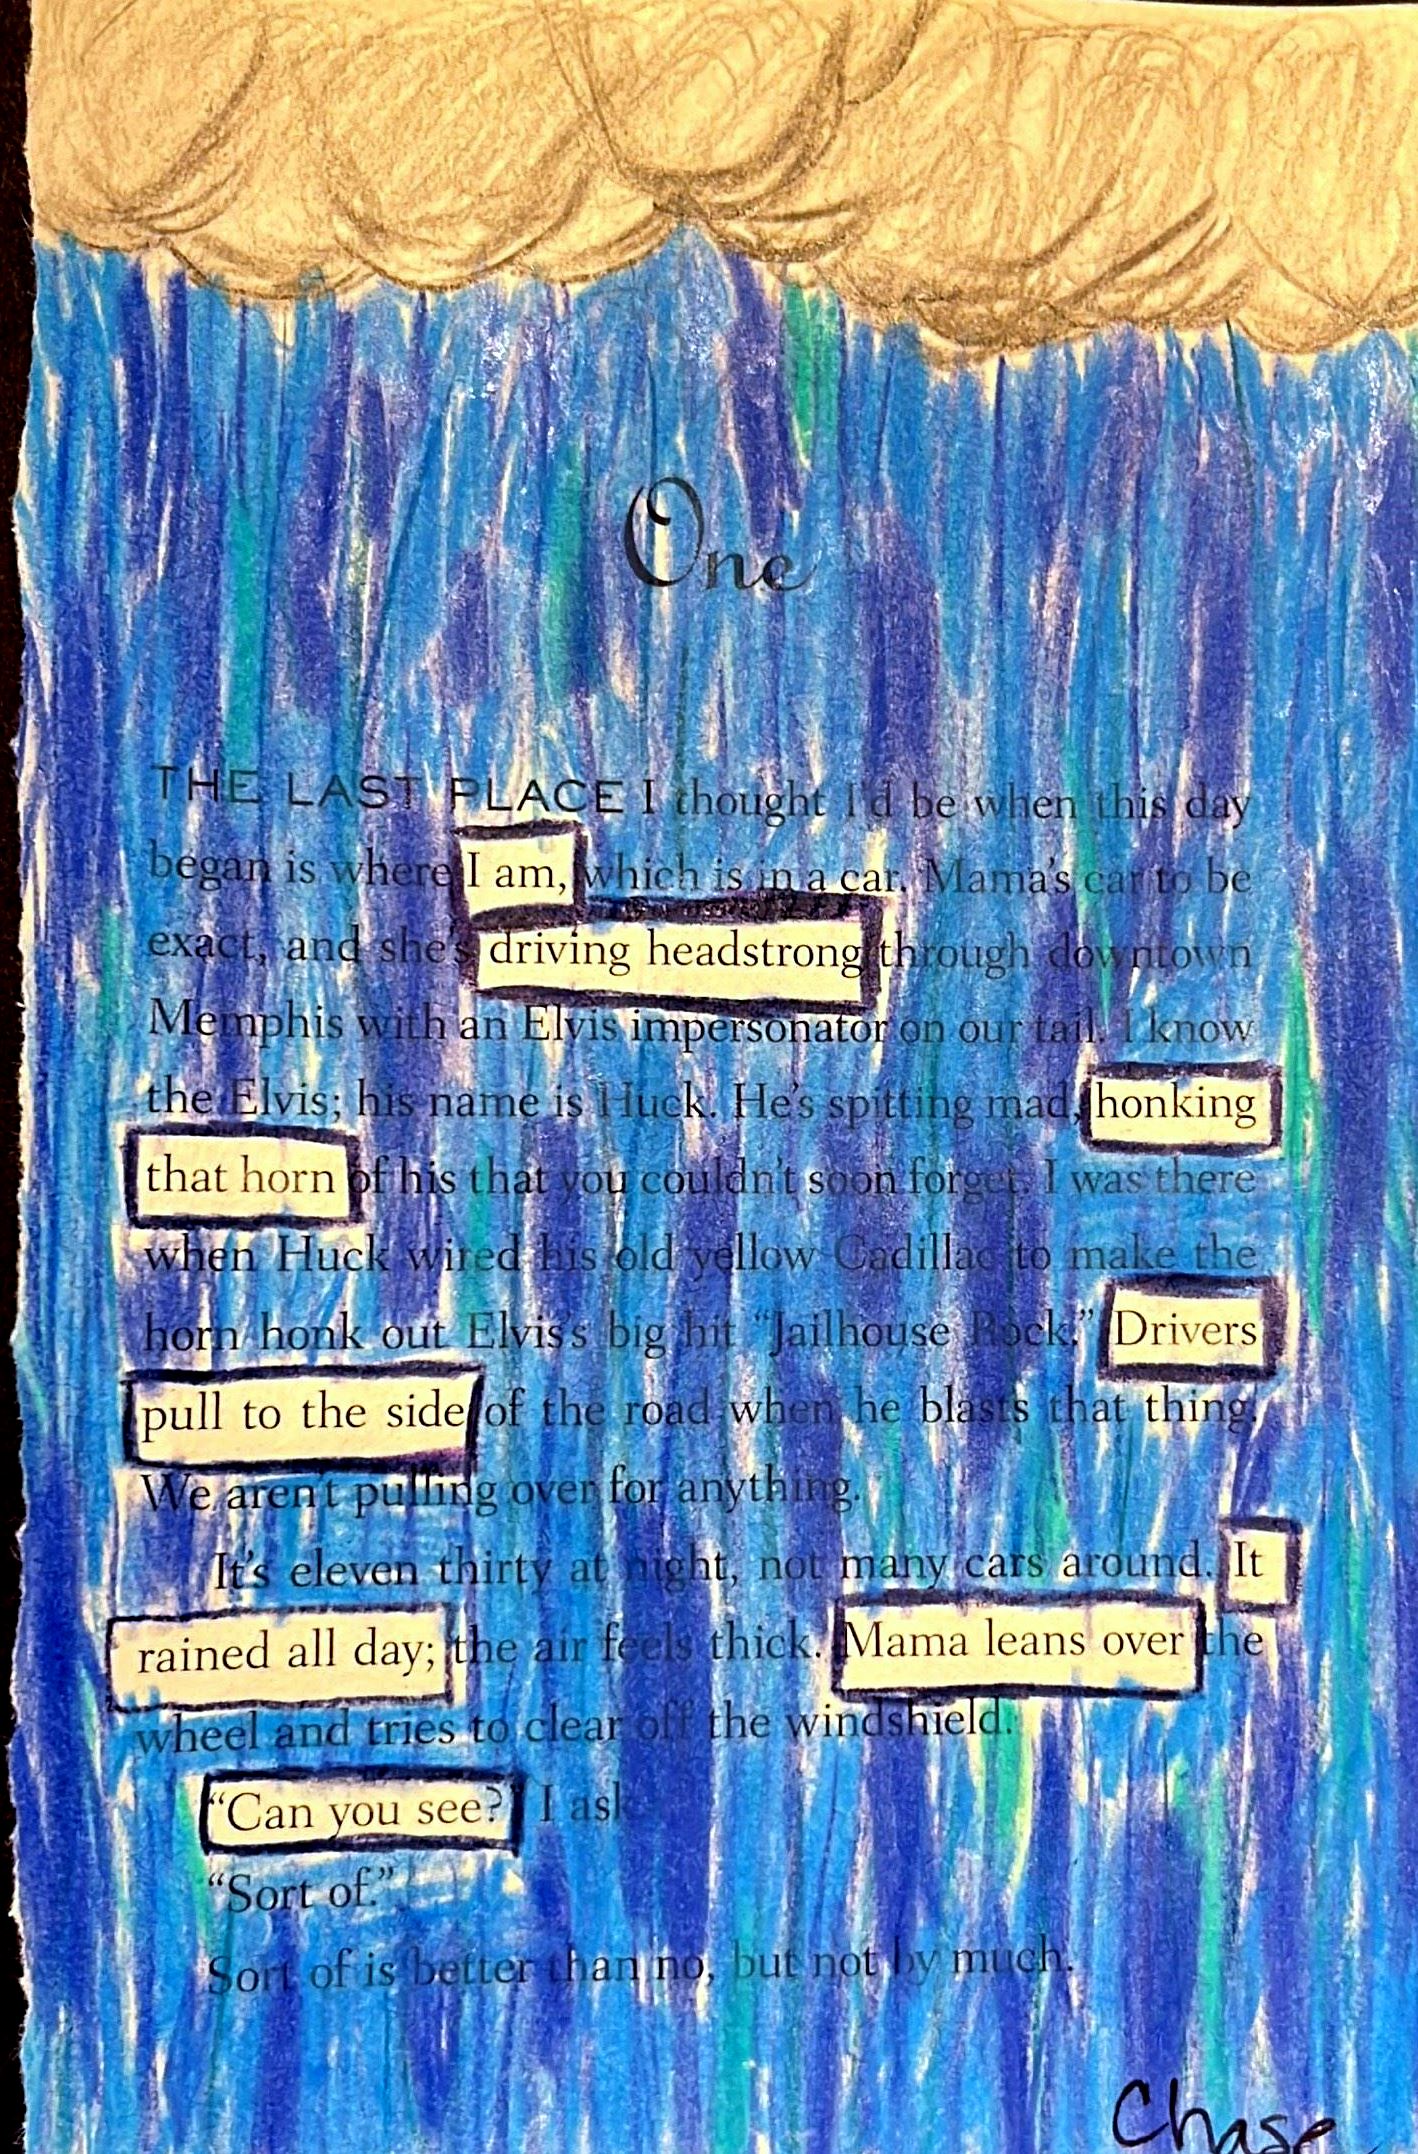 One
THE LAST PLACE I thought I'd be when this day
began is where I am, which is in a car. Mama's car to be
exact, and she's driving headstrong through downtown
Memphis with an Elvis impersonator on our tail. I know
the Elvis; his name is Huck. He's spitting mad, honking
that horn of his that you couldn't soon forget. I was there
when Huck wired his old yellow Cadillac to make the
horn honk out Elvis's big hit “Jailhouse Rock.” Drivers
pull to the side of the road when he blasts that thing.
We aren't pulling over for anything.
It's eleven thirty at night, not many cars around. It
rained all day; the air feels thick. Mama leans over the
wheel and tries to clear off the windshield.
“Can you see?” I ask.
“Sort of.”
Sort of is better than no, but not by much.
Chase